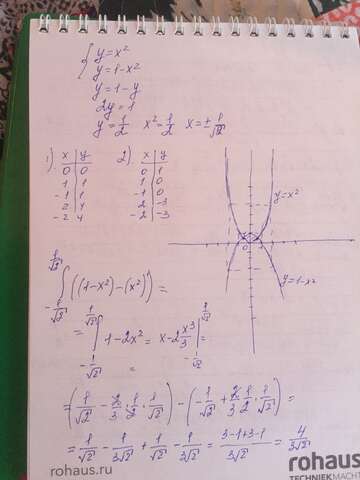 { y = x²
y = 1 - x²
y = 1 - y
2y = 1
y = 1/2   x² = 1/2   x = ± 1/√2
1) x | y
0 | 0
1 | 1
-1 | 1
2 | 4
-2 | 4
2) x | y
0 | 1
1 | 0
-1 | 0
2 | -3
-2 | -3
y = x²
0
y = 1 - x²
∫_{-1/√2}^{1/√2} ((1 - x²) - (x²)) =
= ∫_{-1/√2}^{1/√2} 1 - 2x² = x - 2 x³/3 |_{-1/√2}^{1/√2} =
= (1/√2 - 2/3 · 1/2 · 1/√2) - (-1/√2 + 2/3 · 1/2 · 1/√2) =
= 1/√2 - 1/3√2 + 1/√2 - 1/3√2 = (3-1+3-1)/3√2 = 4/3√2
rohaus.ru
rohaus
TECHNIEKMACHT